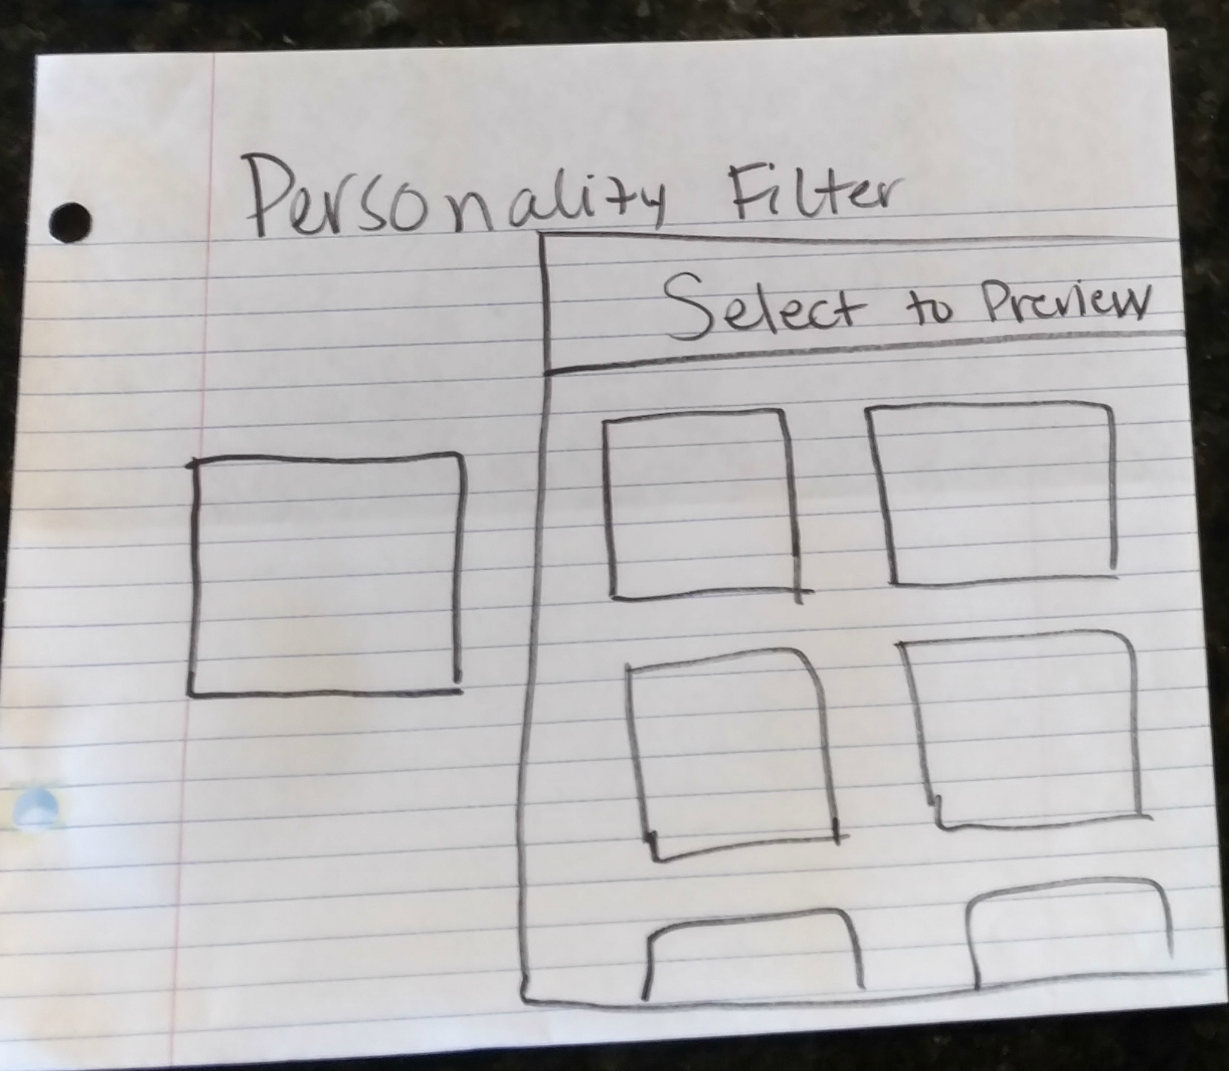 Personality Filter
Select to Preview